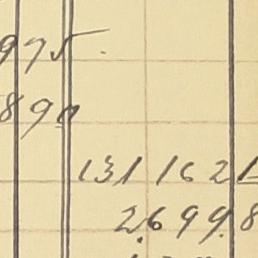 975.
890
1311621
2.699.8